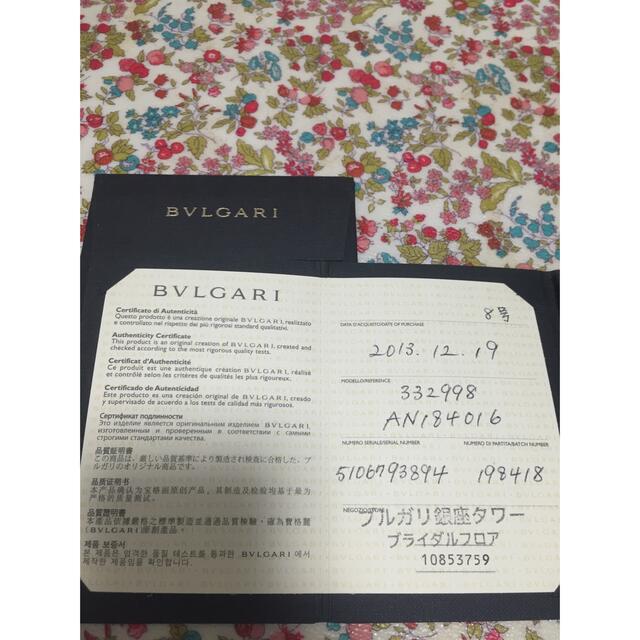 BVLGARI
BVLGARI
Certificato di Autenticità
Questo prodotto è una creazione originale BVLGARI, realizzato
e controllato nel rispetto dei più rigorosi standard qualitativi.
Authenticity Certificate
This product is an original creation of BVLGARI, created and
checked according to the most rigorous quality tests.
Certificat d'Authenticité
Ce produit est une authentique création BVLGARI, réalisé
et contrôlé selon les critères de qualité les plus rigoureux.
Certificado de Autenticidad
Este producto es una creación original de BVLGARI, creado
y supervisado de acuerdo a los tests de calidad más rigurosos.
Сертификат подлинности
Это изделие является оригинальным изделием BVLGARI,
изготовленным и проверенным в соответствии с самыми
строгими стандартами качества.
品質証明書
この商品は、厳しい品質基準により製造され検査に合格した、ブ
ルガリのオリジナル商品です。
品质证明书
本产品确认为宝格丽原创产品，其制造及检验均基于最为
严格的质量测试。
品質證明書
本產品依據嚴格之標準製造並通過品質檢驗，確為寶格麗
(BVLGARI)原創產品。
제품 보증서
본 제품은 엄격한 품질 테스트를 통과한 BVLGARI에서
제작한 제품임을 확인합니다.
8号
DATA D'ACQUISTO/DATE OF PURCHASE
2013.12.19
MODELLO/REFERENCE
332998
AN184016
NUMERO SERIALE/SERIAL NUMBER
NUMERO DI PARTITA/BATCH NUMBER
5106793894
198418
NEGOZIO/STORE
ブルガリ銀座タワー
ブライダルフロア
10853759